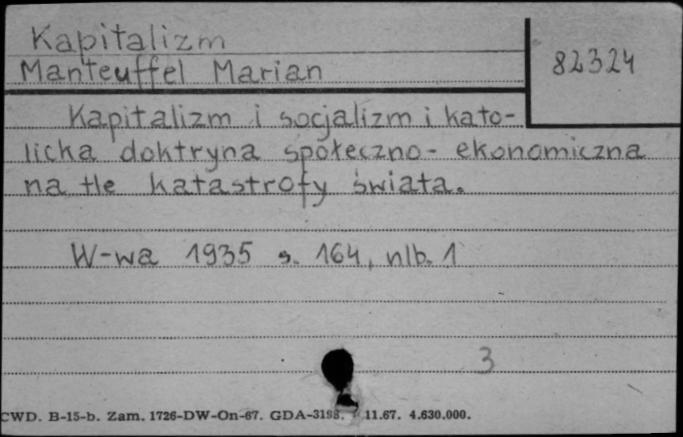 Kapitalizm
Manteuffel Marian
82324
Kapitalizm i socjalizm i kato-
licka doktryna społeczno-ekonomiczna
na tle katastrofy świata.
W-wa 1935 s. 164, nlb. 1
3
CWD. B-15-b. Zam. 1726-DW-On-67. GDA-3198. 11.67. 4.630.000.